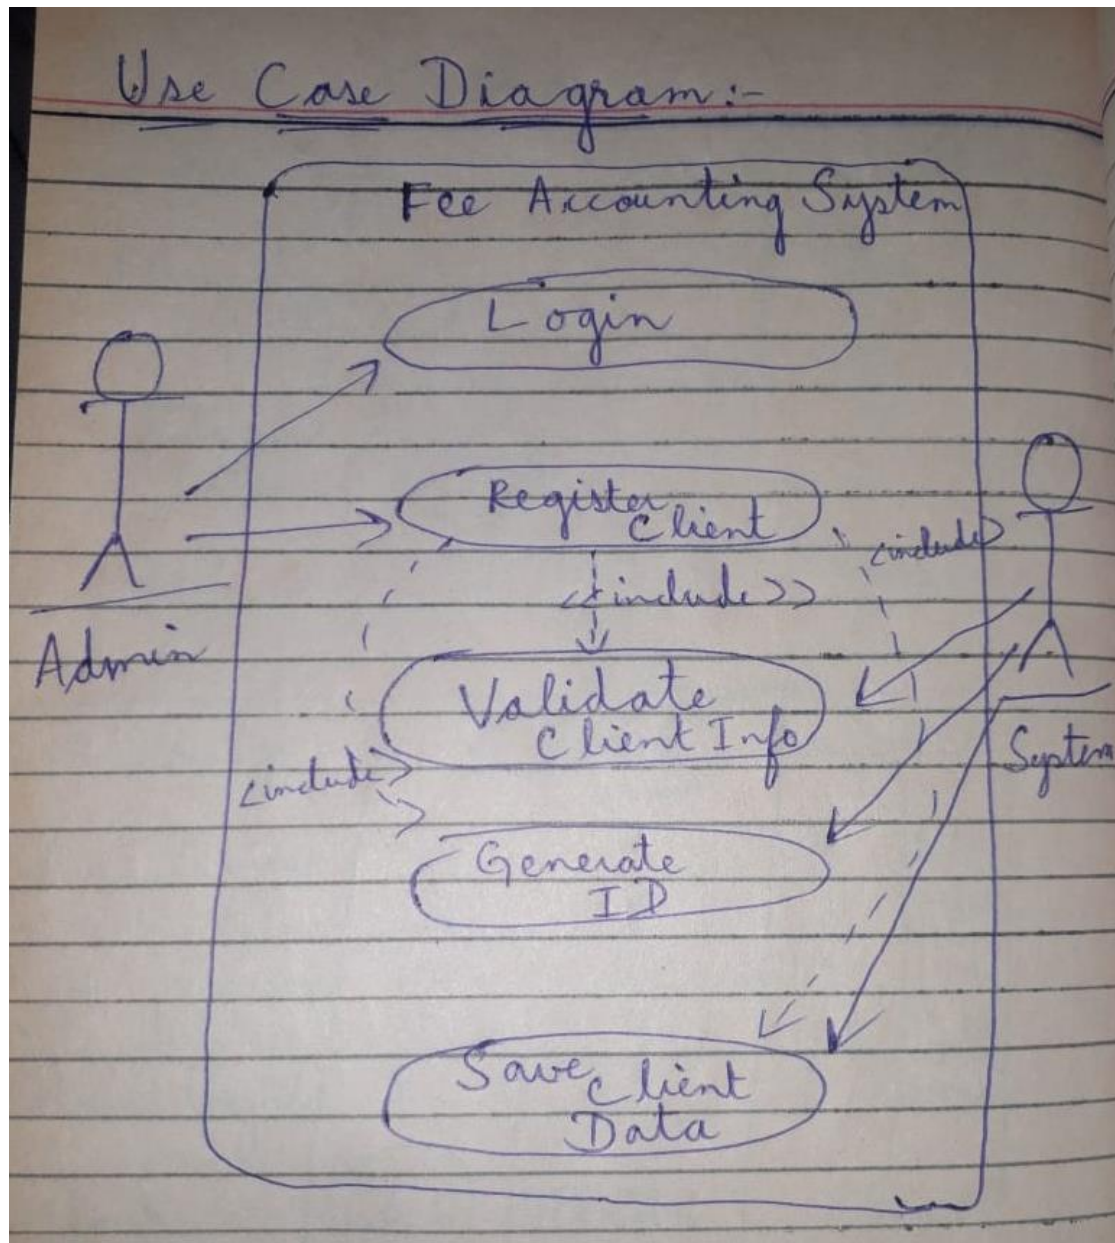 Use Case Diagram:-
Fee Accounting System
Login
Register
Client
<include>
<<include>>
Admin
Validate
Client Info
System
<include>
Generate
ID
Save Client
Data